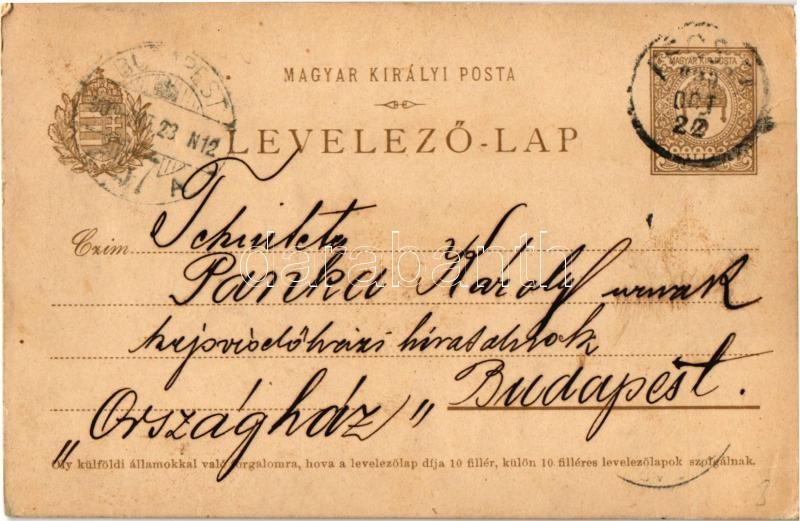 MAGYAR KIRÁLYI POSTA
LEVELEZŐ-LAP
BUDAPEST
23 N12
MAGYAR KIR. POSTA
OCT
22
Czim
Panka Károly urnak
képviselőházi hivatalnok
„Országház” Budapest.
darabanth
Oly külföldi államokkal való forgalomra, hova a levelezőlap díja 10 fillér, külön 10 filléres levelezőlapok szolgálnak.
3